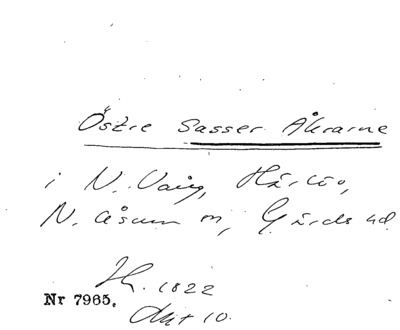 Östre Sasser Åkrarne
i N. Vång, Härlöv,
N. Åsum sn, Gärds hd.
H. 1822
Nr 7965.
Akt 10.